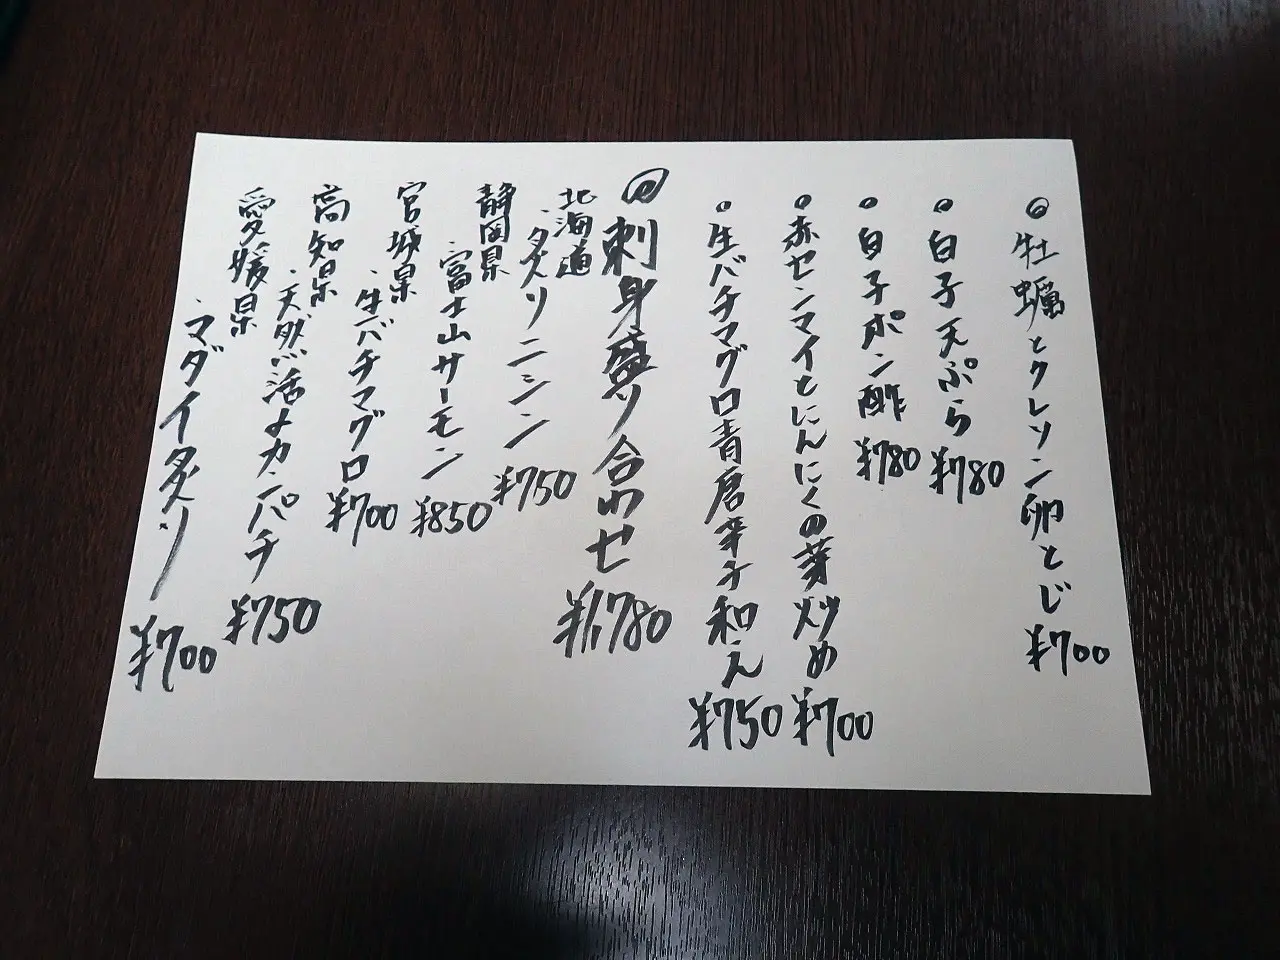 ◎牡蠣とクレソン卵とじ ¥700
・白子天ぷら ¥780
・白子ポン酢 ¥780
・赤センマイとにんにくの芽炒め ¥700
・生バチマグロ青唐辛子和え ¥750
◎刺身盛り合わせ ¥1,780
北海道
・炙りニシン ¥750
静岡県
・富士山サーモン ¥850
宮城県
・生バチマグロ ¥700
高知県
・天然活〆カンパチ ¥750
愛媛県
・マダイ炙り ¥700